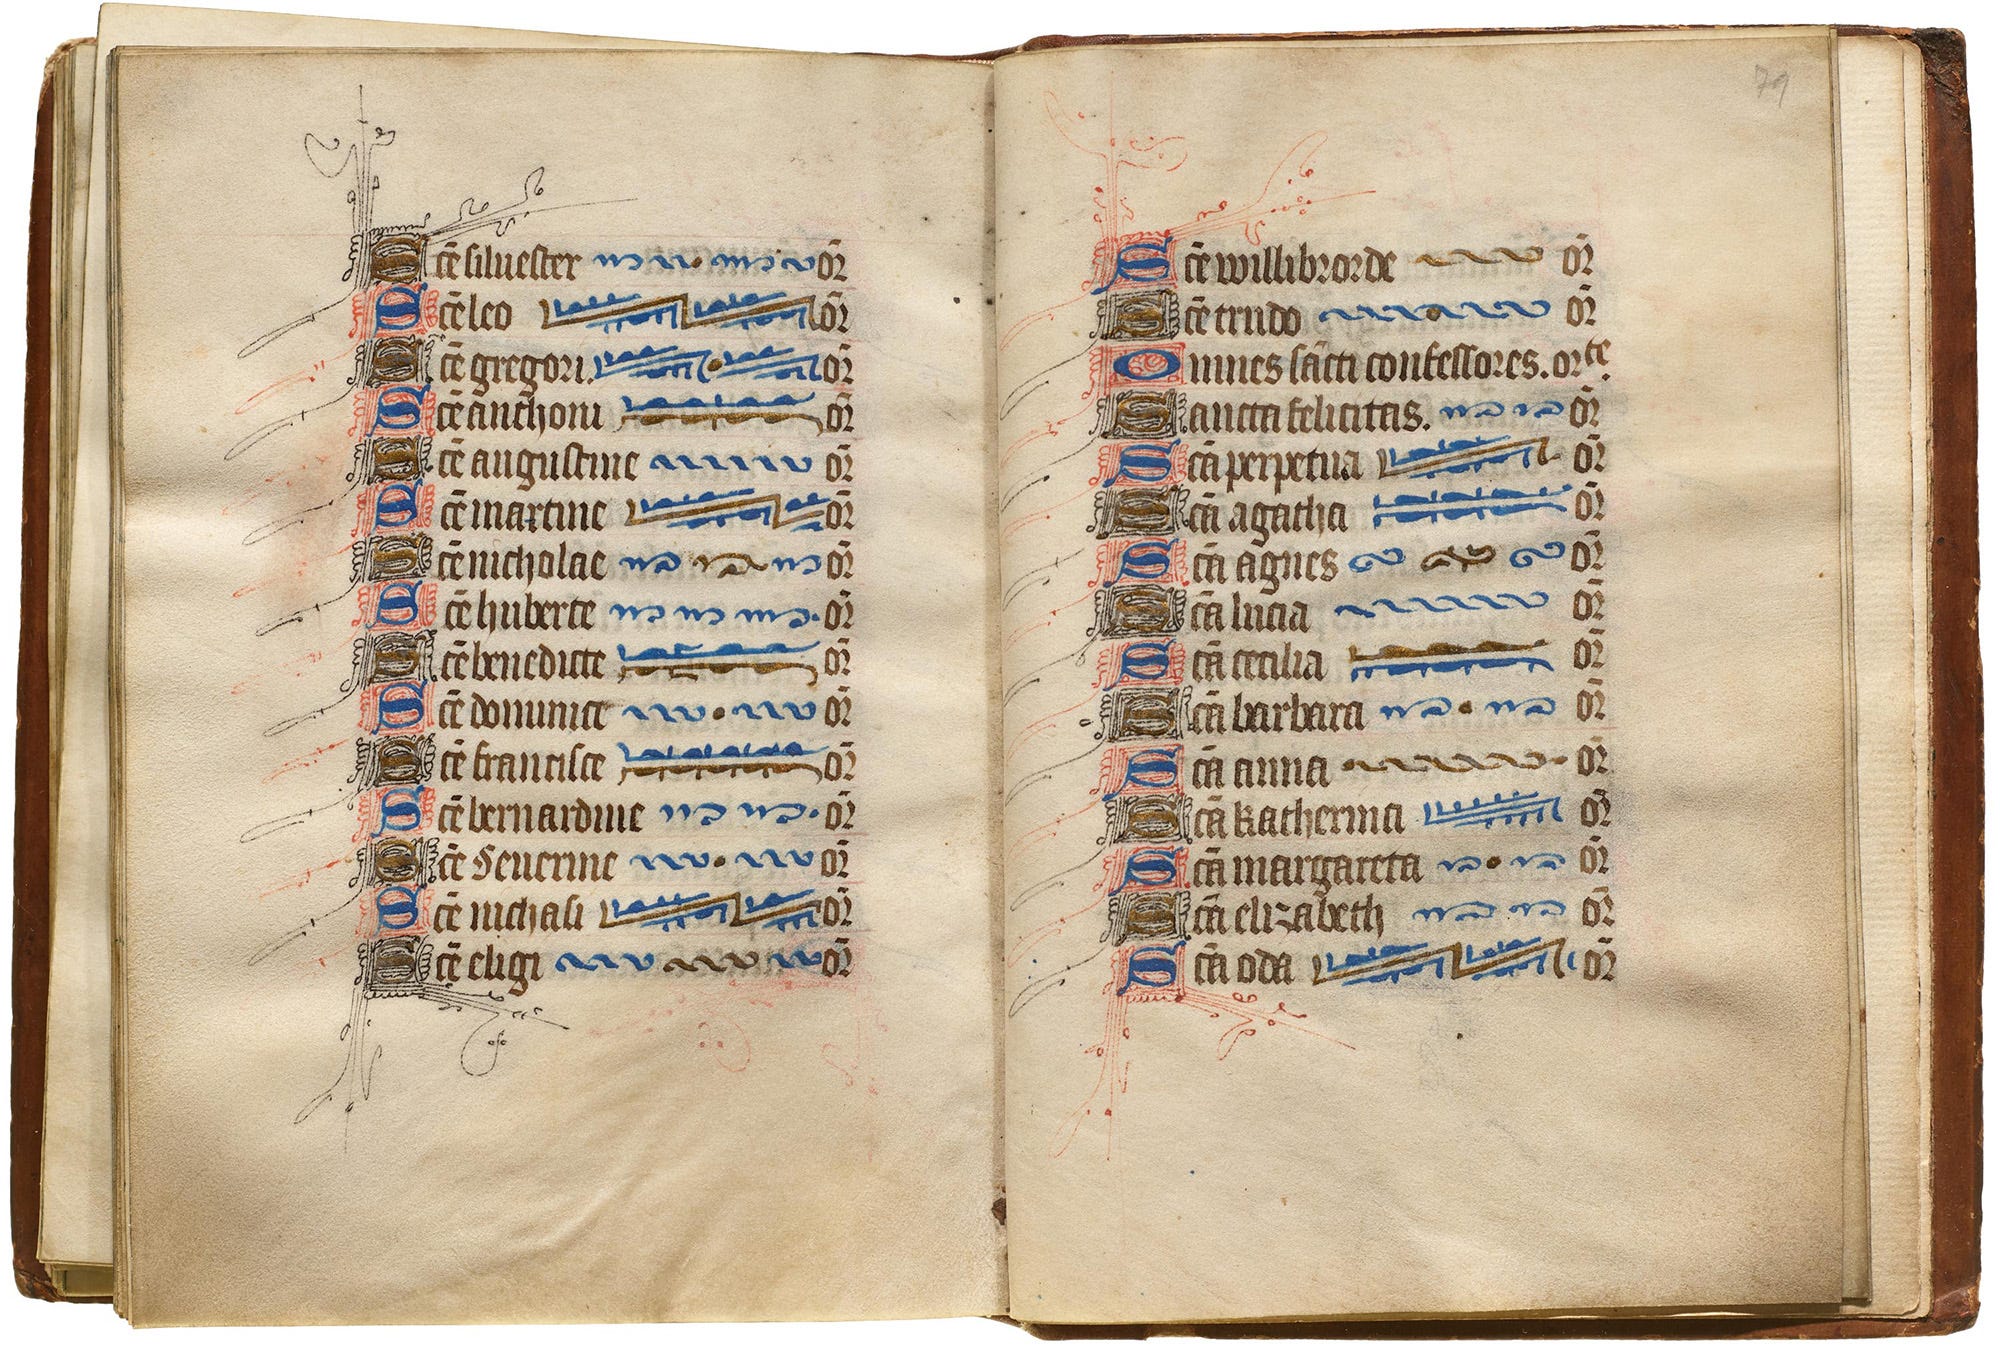 Scē siluester or̄
Scē leo or̄
Scē gregori. or̄
Scē anthoni or̄
Scē augustine or̄
Scē martine or̄
Scē nicholae or̄
Scē huberte or̄
Scē benedicte or̄
Scē dominice or̄
Scē francisce or̄
Scē bernardine or̄
Scē Seuerine or̄
Scē nichasi or̄
Scē eligi or̄
79
Scē willibrorde or̄
Scē trudo or̄
Omnes sācti confessores. orte.
Sancta felicitas. or̄
Scā perpetua or̄
Scā agatha or̄
Scā agnes or̄
Scā lucia or̄
Scā cecilia or̄
Scā barbara or̄
Scā anna or̄
Scā katherina or̄
Scā margareta or̄
Scā elizabeth or̄
Scā oda or̄